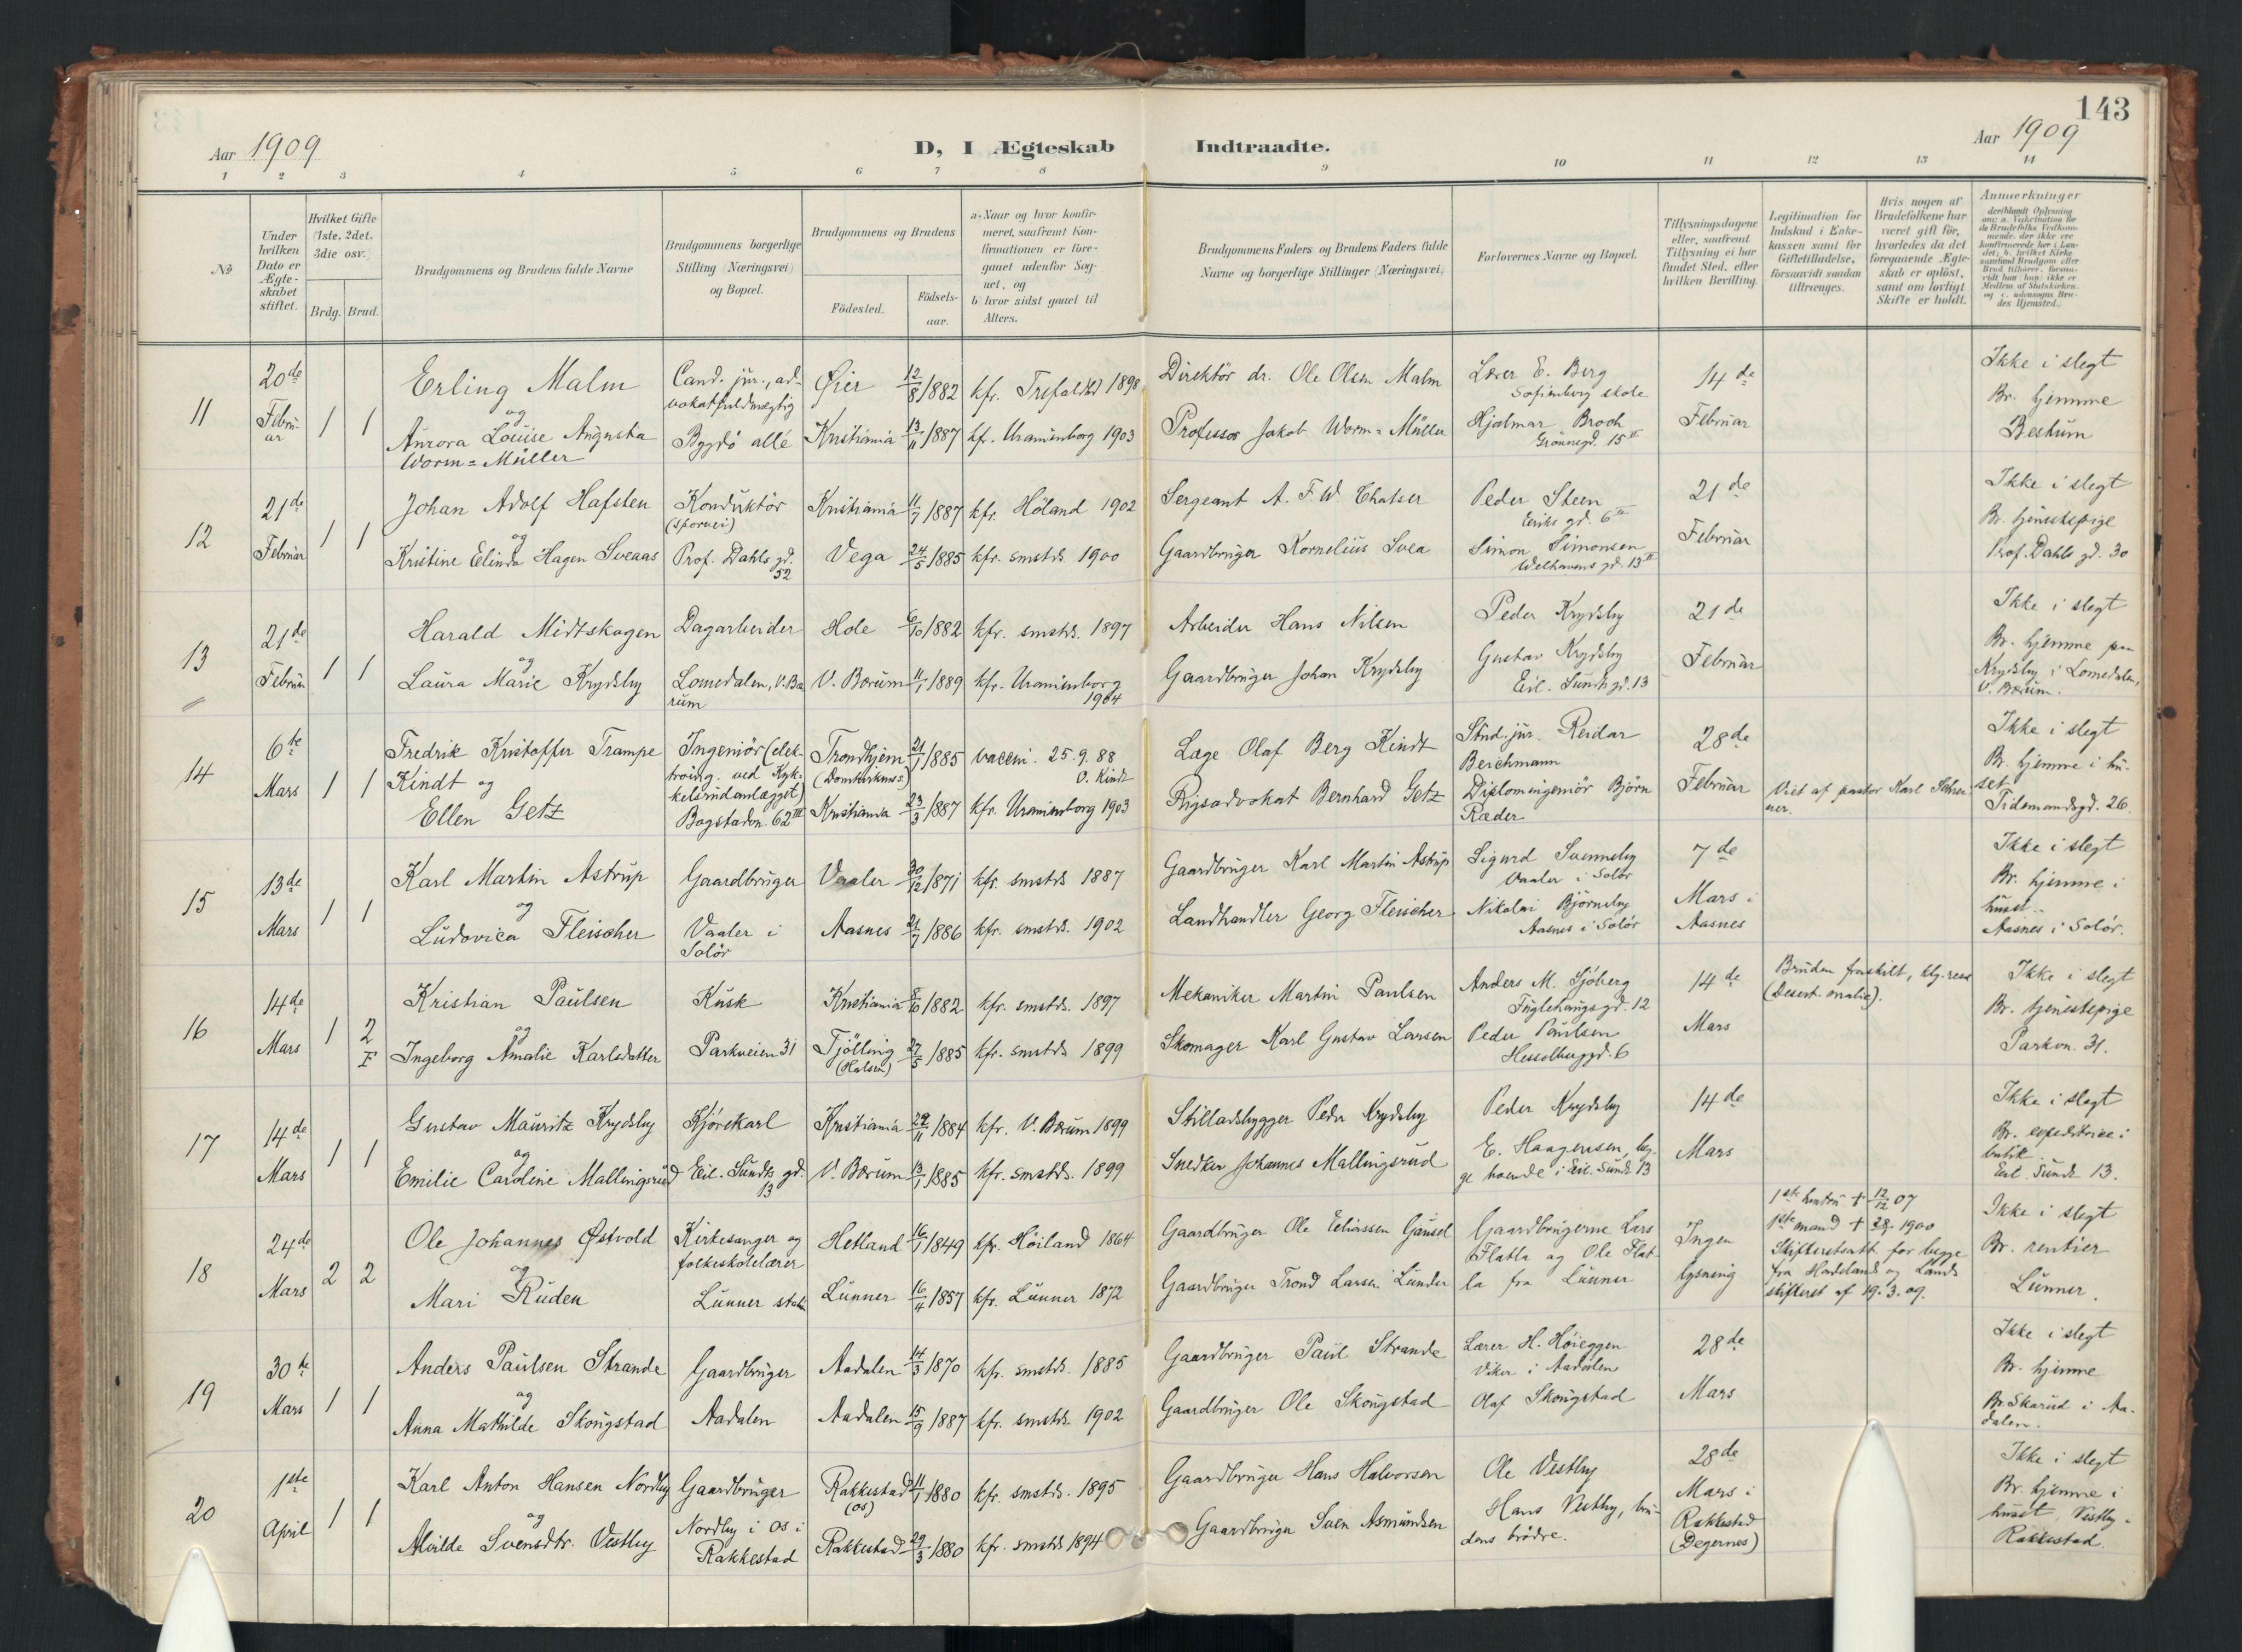 143
Aar 1909
D, I Ægteskab Indtraadte.
Aar 1909
1 2 3 4 5 6 7 8 9 10 11 12 13 14
No
Under hvilken Dato er Ægteskabet stiftet.
Hvilket Gifte (1ste, 2det, 3die osv.)
Brdg. Brud.
Brudgommens og Brudens fulde Navne
Brudgommens borgerlige Stilling (Næringsvei) og Bopæl.
Brudgommens og Brudens
Födested.
Födselsaar.
a. Naar og hvor konfirmeret, saafremt Konfirmationen er foregaaet udenfor Sognet, og
b) hvor sidst gaaet til Alters.
Brudgommens Faders og Brudens Faders fulde Navne og borgerlige Stillinger (Næringsvei)
Forlovernes Navne og Bopæl.
Tillysningsdagene eller, saafremt Tillysning ei har fundet Sted, efter hvilken Bevilling.
Legitimation for Indskud i Enkekassen samt for Giftetilladelse, forsaavidt saadan tiltrænges.
Hvis nogen af Brudefolkene har været gift för, hvorledes da det foregaaende Ægteskab er oplöst, samt om lovligt Skifte er holdt.
Anmerkninger
11
20de
Februar
1 1
Erling Malm
og
Aurora Louise Augusta
Worm=Müller
Cand. jur., advokatfuldmægtig
Bygdö allé
Øier 12/8 1882 kfr. Trefoldhd 1898
Kristiania 13/11 1887 kf. Uranienborg 1903
Direktör dr. Ole Olsen Malm
Professor Jakob Worm=Müller
Lærer E. Berg
Sofienberg skole
Hjalmar Broch
Grönnegd. 15 II
14de
Februar
Ikke i slegt
Br. hjemme
Bestum
12
21de
Februar
1 1
Johan Adolf Hafsten
og
Kristine Elinda Hagen Sveaas
Konduktör
(sporvei)
Prof. Dahls gd.
52
Kristiania 11/7 1887 kfr. Höland 1902
Vega 24/5 1885 kfr. smstds. 1900
Sergeant A. F. W.
Gaardbruger Kornelius Svea
Peder Steen
Eriks gd. 6
Simon Simonsen
Welhavens gd. 13 II
21de
Februar
Ikke i slegt
Br. tjenestepige
Prof. Dahls gd. 30
13
21de
Februar
1 1
Harald Midtskogen
og
Laura Marie Krydsby
Dagarbeider
Lomedalen, V. Bærum
Hole 6/10 1882 kfr. smstds. 1897
V. Bærum 11/1 1889 kfr. Uranienborg
1904
Arbeider Hans Nilsen
Gaardbruger Johan Krydsby
Peder Krydsby
Gustav Krydsby
Eil. Sunds gd. 13
21de
Februar
Ikke i slegt
Br. hjemme paa
Krydsby i Lomedalen,
V. Bærum.
14
6te
Mars
1 1
Fredrik Kristoffer Trampe
Kindt og
Ellen Getz
Ingeniör (elektroing. ved Kykkelsrudanlægget)
Bogstadvn. 62 III
Trondhjem 21/1 1885 vaccin. 25.9.88
(Domkirkens) O. Kindt
Kristiania 23/3 1887 kfr. Uranienborg 1903
Læge Olaf Berg Kindt
Rigsadvokat Bernhard Getz
Stud. jur. Reidar
Berchmann
Diplomingeniör Björn
Ræder
28de
Februar
Viet af pastor Karl
Ikke i slegt
Br. hjemme i huset
Tidemandsgd. 26.
15
13de
Mars
1 1
Karl Martin Astrup
og
Ludovica Fleischer
Gaardbruger
Vaaler i
Solör
Vaaler 30/12 1871 kfr. smstds 1887
Aasnes 21/7 1886 kfr. smstds. 1902
Gaardbruger Karl Martin Astrup
Landhandler Georg Fleischer
Sigurd Svenneby
Vaaler i Solör
Nikolai Björneby
Aasnes i Solör
7de
Mars i
Aasnes
Ikke i slegt
Br. hjemme i
huset
Aasnes i Solör.
16
14de
Mars
1 2
F
Kristian Paulsen
og
Ingeborg Amalie Karlsdatter
Kusk
Parkveien 31
Kristiania 8/10 1882 kfr. smstds. 1897
Tjölling 27/5 1885 kfr. smstds 1899
(Halsen)
Mekaniker Martin Paulsen
Skomager Karl Gustav Larsen
Anders M. Sjöberg
Fuglehaugsgd. 12
Peder Paulsen
Hesselberggd. 6
14de
Mars
Bruden fraskilt, klg. res.
Ikke i slegt
Br. tjenestepige
Parkvn. 31.
17
14de
Mars
1 1
Gustav Mauritz Krydsby
og
Emilie Caroline Mallingsrud
Kjörekarl
Eil. Sundts gd.
13
Kristiania 29/11 1884 kfr. V. Bærum 1899
V. Bærum 13/1 1885 kfr. smstds. 1899
Stilladsbygger Peder Krydsby
Snedker Johannes Mallingsrud
Peder Krydsby
E. Haagensen, begge boende i Eil. Sunds 13
14de
Mars
Ikke i slegt
Br. expeditrice i
butik
Eil. Sunds 13.
18
24de
Mars
2 2
Ole Johannes Østvold
og
Mari Ruden
Kirkesanger og
folkeskolelærer
Lunner
Hetland 16/1 1849 kfr. Höiland 1864
Lunner 16/4 1857 kfr. Lunner 1872
Gaardbruger Ole Eeliassen Gausel
Gaardbruger Trond Larsen Lunder
Gaardbrugerne Lars
Flatla og Ole Flatla fra Lunner
Ingen
lysning
1ste hustru † 12/12 07
1ste mand † 1900
Skifteretsatt. for begge
fra Hadeland og Lands
skifteret af 19.3.09.
Ikke i slegt
Br. rentier
Lunner.
19
30te
Mars
1 1
Anders Paulsen Strande
og
Anna Mathilde Skougstad
Gaardbruger
Aadalen
Aadalen 14/3 1870 kfr. smstds. 1885
Aadalen 15/9 1887 kfr. smstds. 1902
Gaardbruger Paul Strande
Gaardbruger Ole Skougstad
Lærer H. Höieggen
Viker i Aadalen
Olaf Skougstad
28de
Mars
Ikke i slegt
Br. hjemme
Br. Skarud i Aadalen.
20
1ste
April
1 1
Karl Anton Hansen Nordby
og
Alvilde Svensdtr. Vestby
Gaardbruger
Nordby i Os i
Rakkestad
Rakkestad 11/1 1880 kfr. smstds. 1895
(os)
Rakkestad 29/3 1880 kfr. smstds 1894
Gaardbruger Hans Halvorsen
Gaardbruger Sven Asmundsen
Ole Vestby
Hans Vestby, brudens brödre.
28de
Mars i
Rakkestad
(Degernes)
Ikke i slegt
Br. hjemme i
huset, Vestby
Rakkestad.